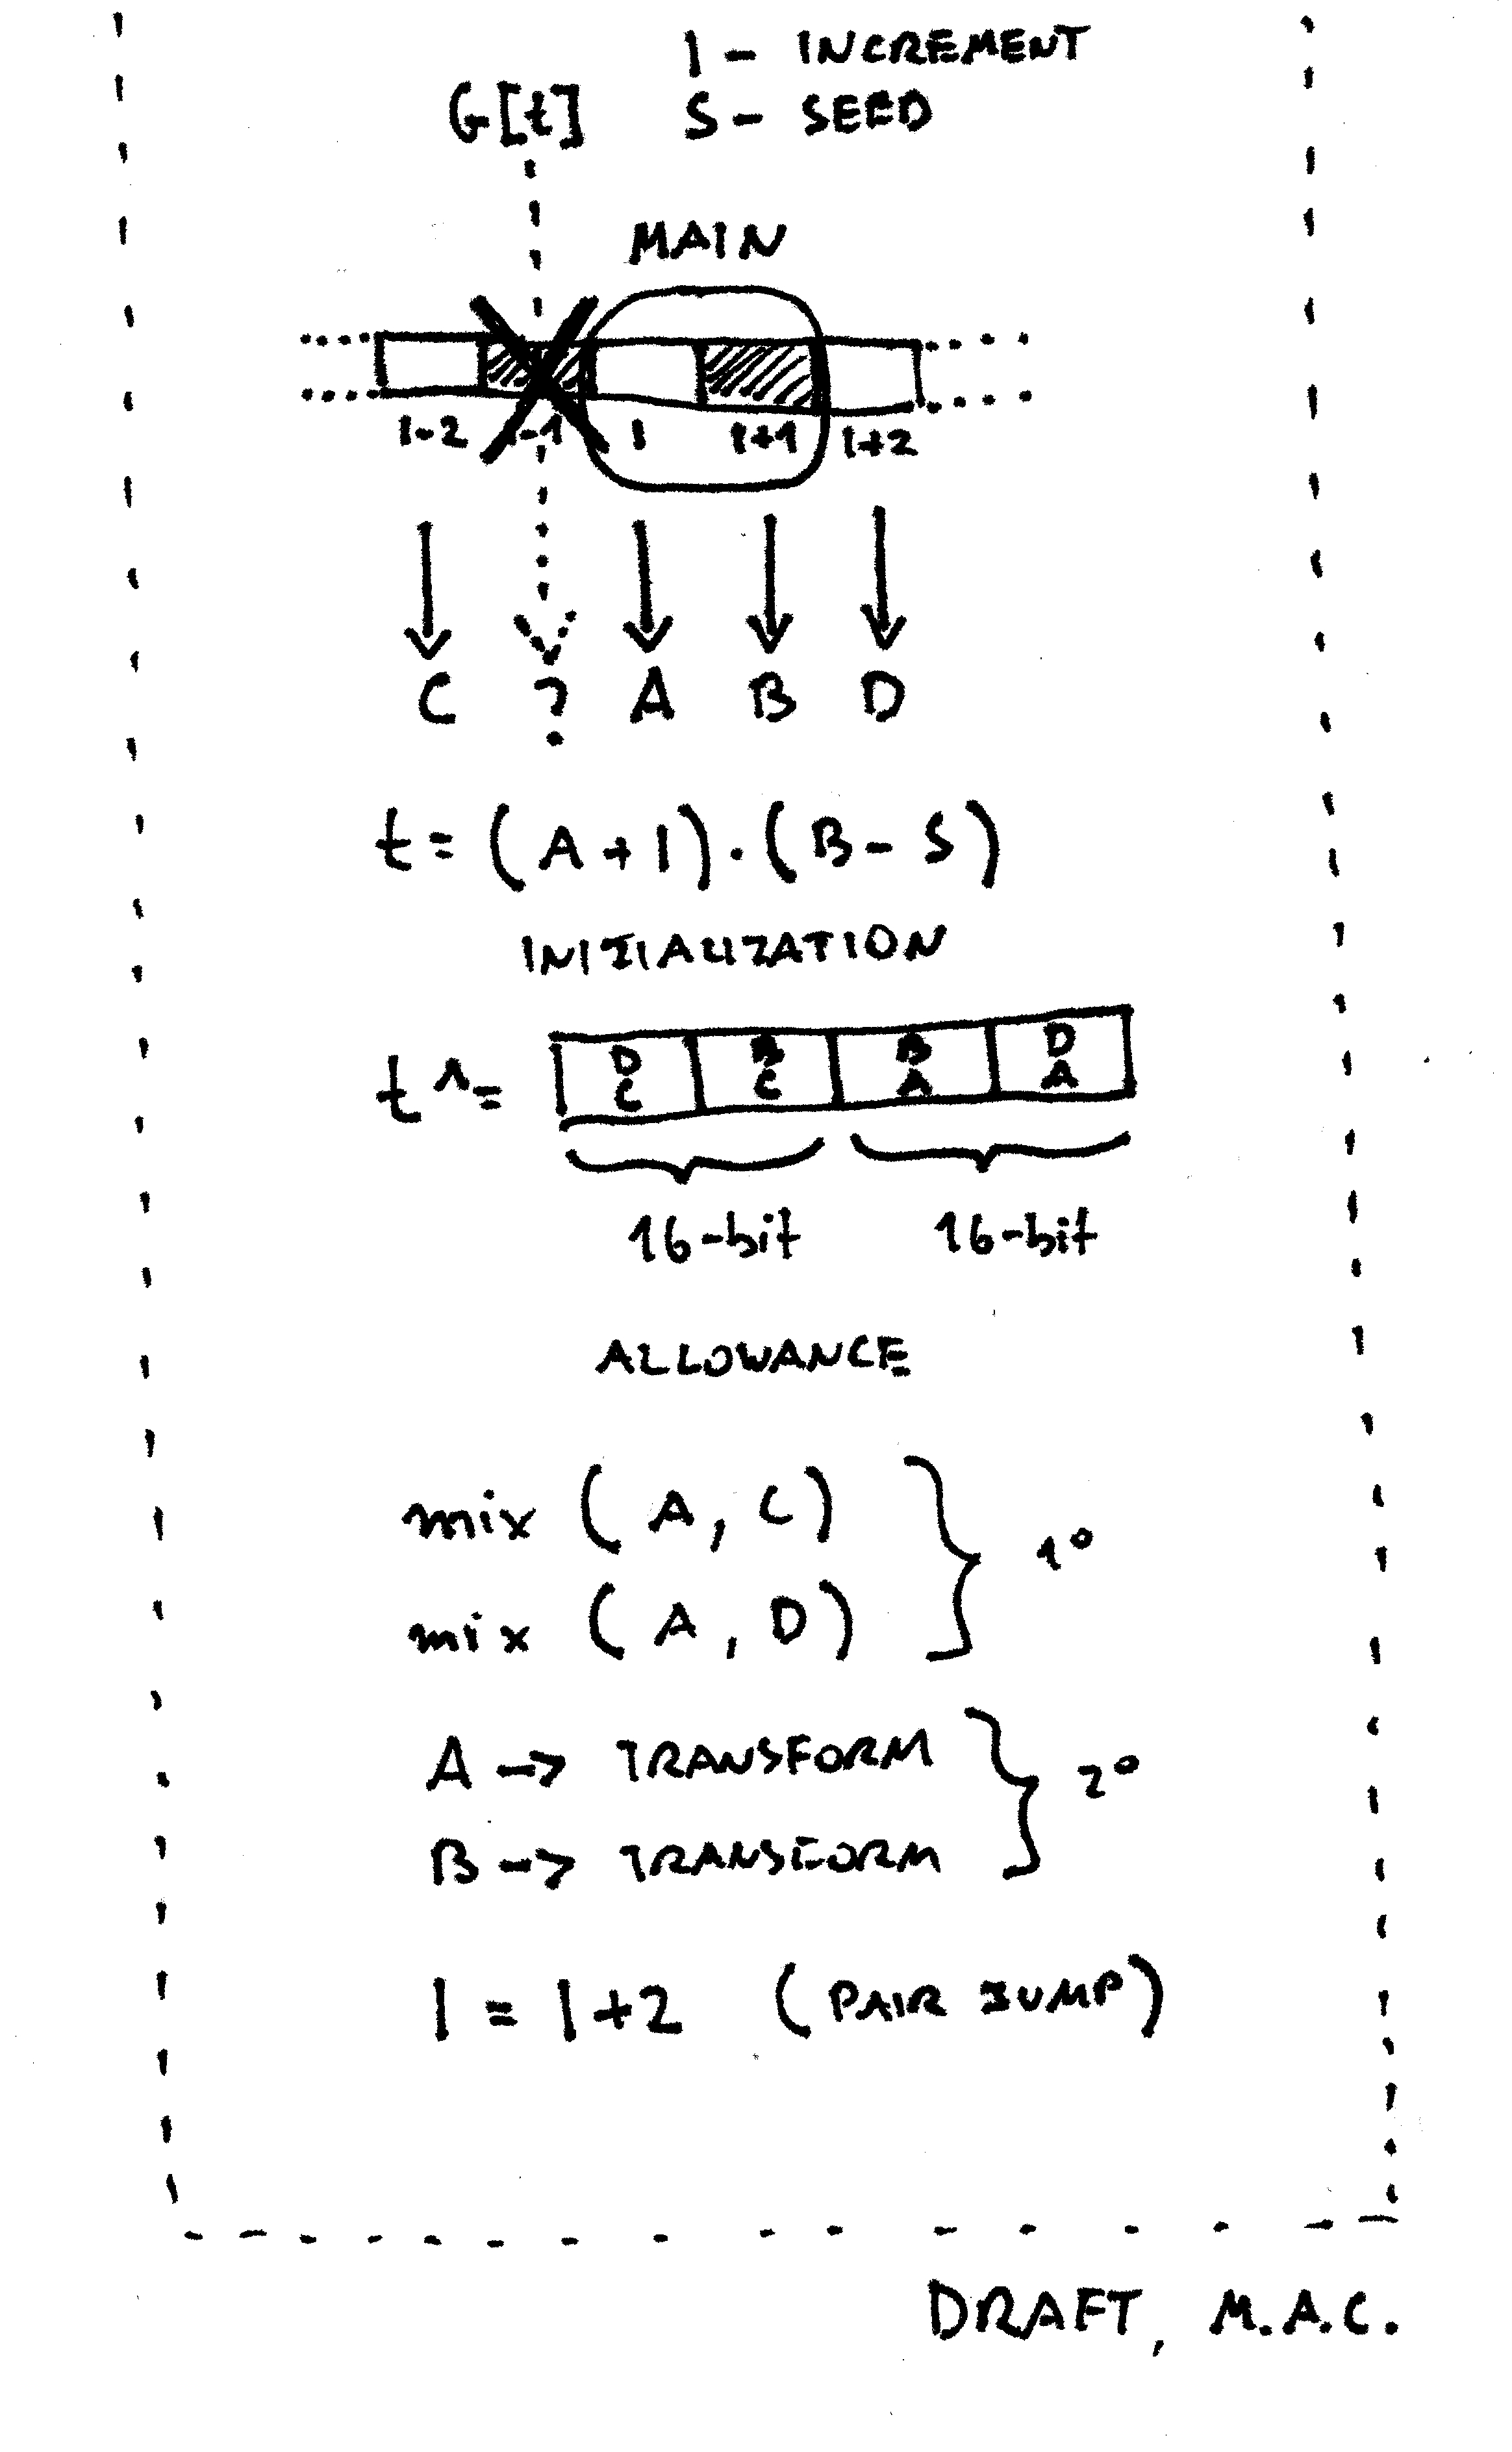 I - INCREMENT
G[t] S - SEED
MAIN
I-2 I-1 I I+1 I+2
C ? A B D
t = (A + I) · (B - S)
INITIALIZATION
t ^= D C B C B A D A
16-bit 16-bit
ALLOWANCE
mix (A, C)
1º
mix (A, D)
A -> TRANSFORM
2º
B -> TRANSFORM
I = I+2 (PAIR JUMP)
DRAFT, M.A.C.